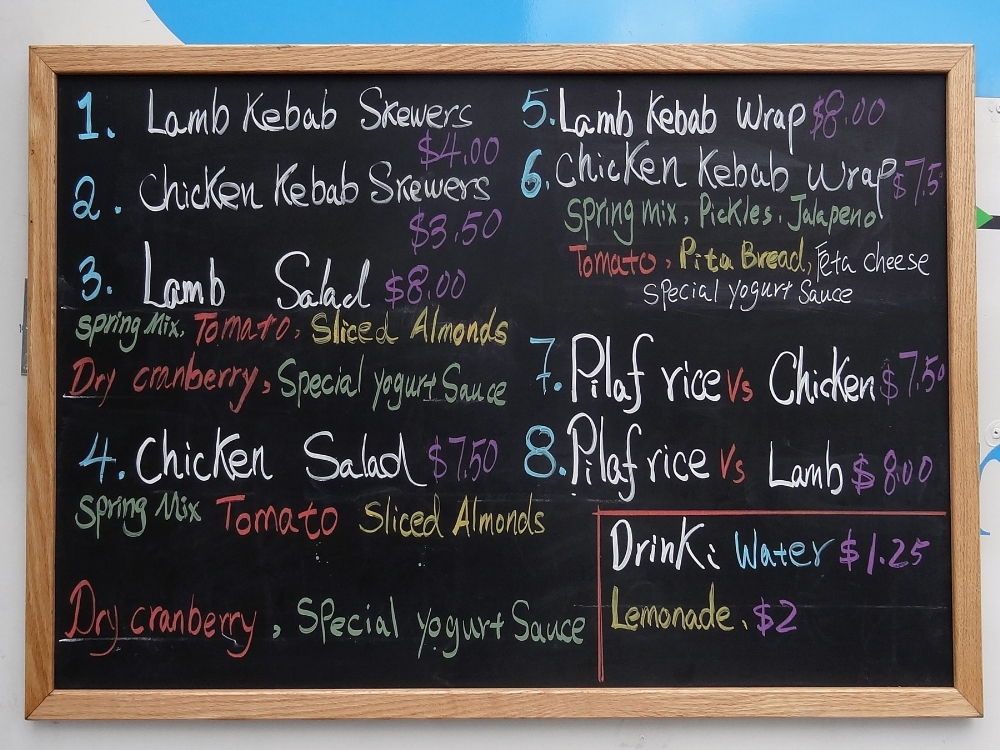 1. Lamb Kebab Skewers
$4.00
2. Chicken Kebab Skewers
$3.50
3. Lamb Salad $8.00
Spring Mix, Tomato, Sliced Almonds
Dry cranberry, Special yogurt Sauce
4. Chicken Salad $7.50
Spring Mix Tomato Sliced Almonds
Dry cranberry, Special yogurt Sauce
5. Lamb Kebab Wrap $8.00
6. Chicken Kebab Wrap $7.5
Spring mix, Pickles, Jalapeno
Tomato, Pita Bread, Feta cheese
Special yogurt Sauce
7. Pilaf rice Vs Chicken $7.50
8. Pilaf rice Vs Lamb $8.00
Drink: Water $1.25
Lemonade, $2